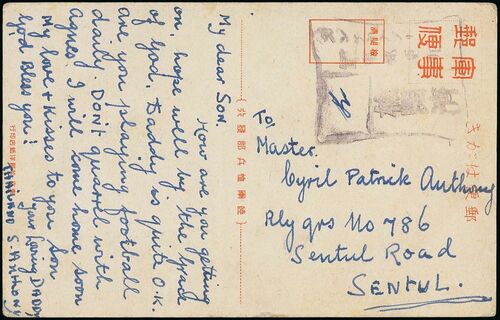 My dear Son.
How are you getting
on, hope well by the Grace
of God. Daddy is quite O.K.
are you playing football
daily. Don't quarrel with
Agnes. I will come home soon
My love & kisses to you Son
God Bless you!
Your loving DADDY
THAILAND S. Anthony
軍事
郵便
濟閲檢
郵便はがき
To/
Master.
Cyril Patrik Anthony
Rly qrs No 786
Sentul Road
SENTUL.